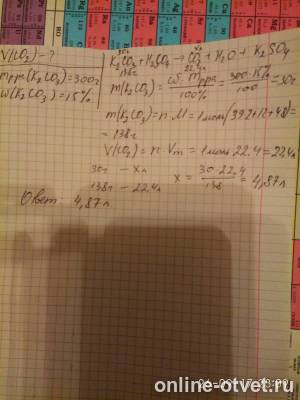 V(CO₂) - ?
mр-ра(K₂CO₃) = 300г
W(K₂CO₃) = 15%
30г xл
K₂CO₃ + H₂SO₄ → CO₂ + H₂O + K₂SO₄
138г 22,4л
m(K₂CO₃) = ω · mр-ра / 100% = 300 · 15% / 100 = 30г
m(K₂CO₃) = n · M = 1моль(39·2+12+48) =
= 138г
V(CO₂) = n · Vm = 1моль · 22,4 = 22,4л
30г - xл
138г - 22,4л
x = 30 · 22,4 / 138 = 4,87л
Ответ: 4,87л
online-otvet.ru